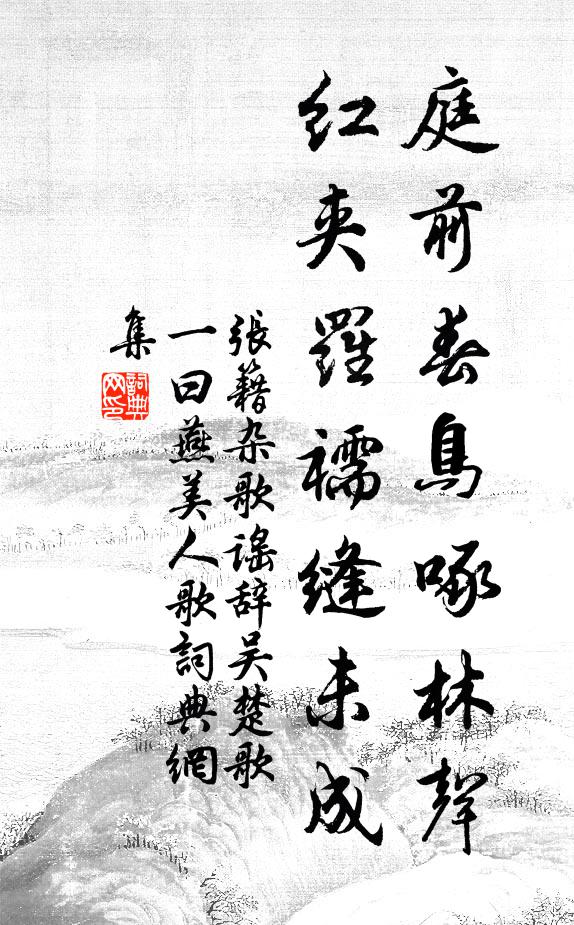 庭前春鳥啄林聲
紅夾羅襦縫未成
張籍杂歌谣辞吴楚歌
一曰燕美人歌詞典網
集
詞典
网印